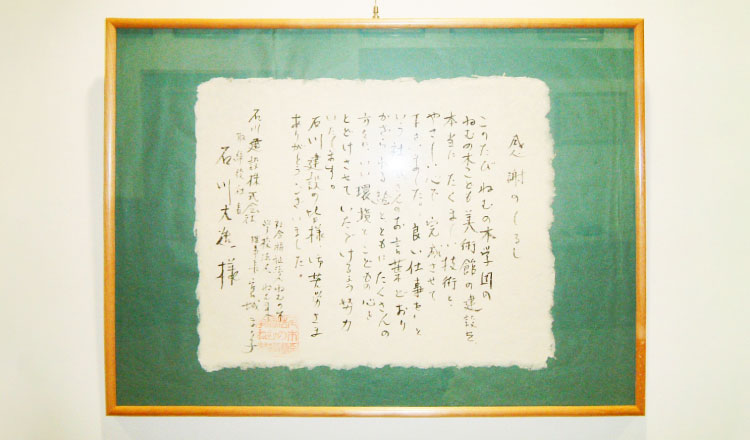 感謝のしるし
このたび ねむの木学園の
ねむの木こども美術館の建設を
本当に たくましい技術と、
やさしい心で 完成させて
下さいました。良い仕事を と
いう社長さんのお言葉どおり
かがやきある
とともに たくさんの
方々に いい環境と こどもの心を
とどけさせていただけるよう努力
いたします。
石川建設の皆様 御苦労さま
ありがとうございました。
ねむの木
宮城まり子
石川建設株式会社
取締役社長
石川 様